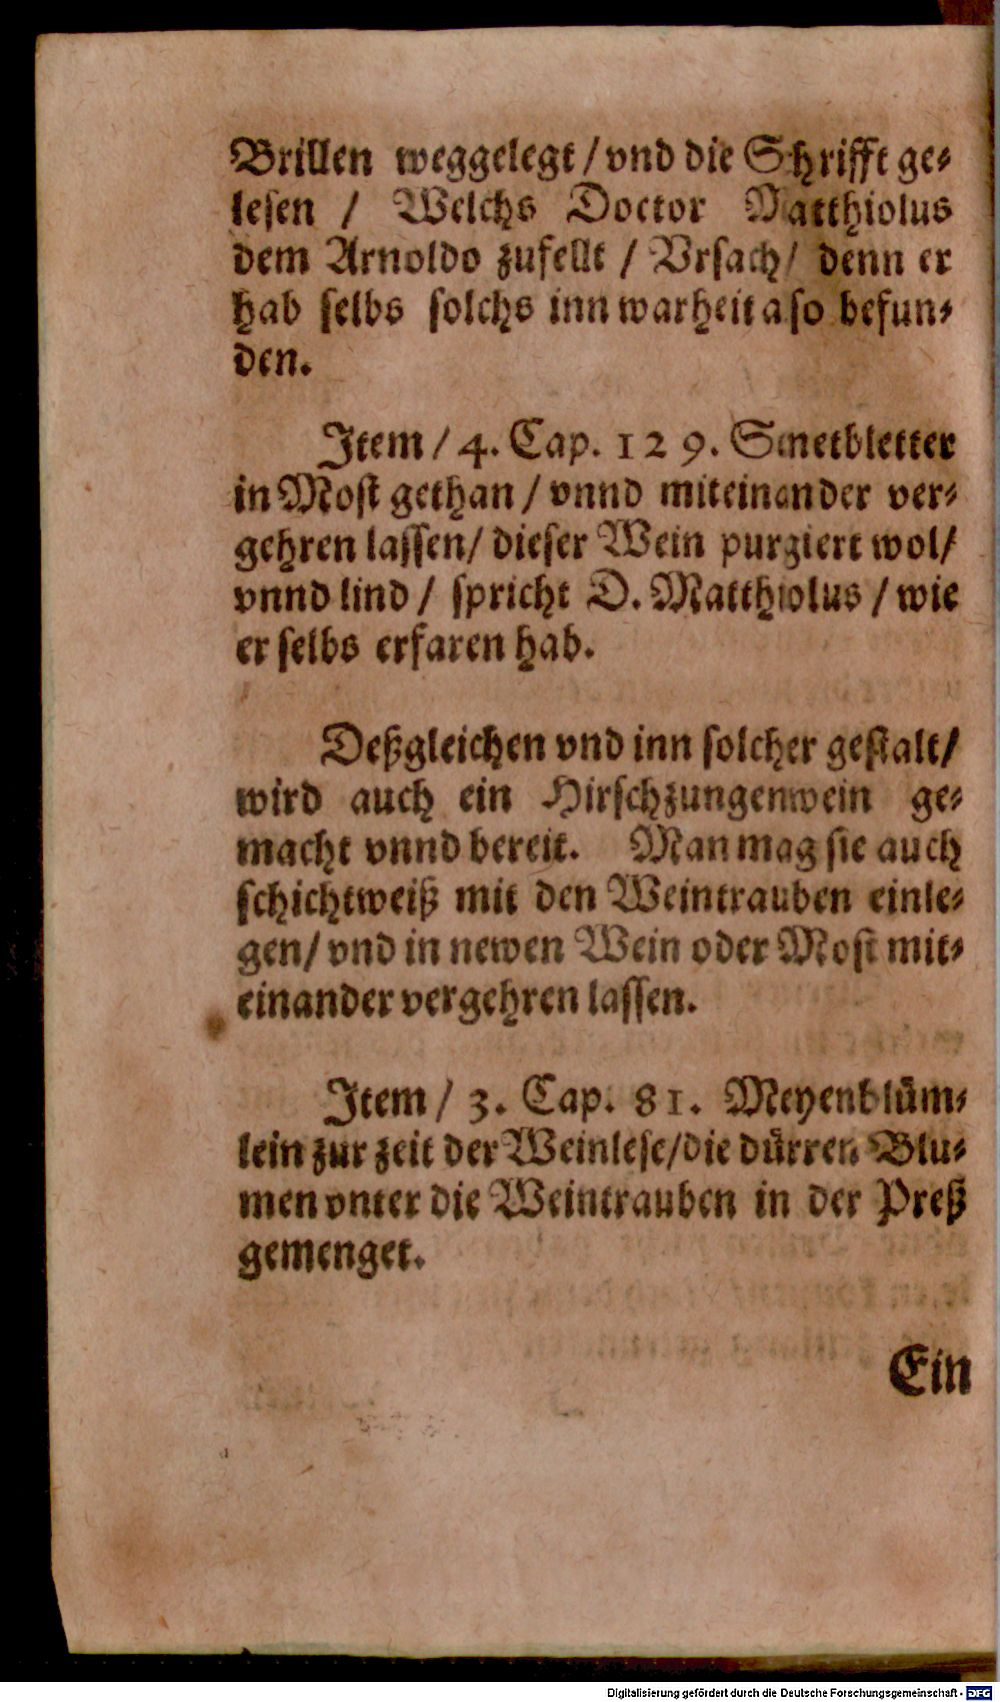 Brillen weggelegt / vnd die Schrifft ge-
lesen / Welchs Doctor Matthiolus
dem Arnoldo zufellt / Vrsach / denn er
hab selbs solchs inn warheit also befun-
den.
Item / 4. Cap. 129. Senetbletter
in Most gethan / vnnd miteinander ver-
gehren lassen / dieser Wein purgiert wol /
vnnd lind / spricht D. Matthiolus / wie
er selbs erfaren hab.
Deßgleichen vnd inn solcher gestalt /
wird auch ein Hirschzungenwein ge-
macht vnnd bereit. Man mag sie auch
schichtweiß mit den Weintrauben einle-
gen / vnd in newen Wein oder Most mit-
einander vergehren lassen.
Item / 3. Cap. 81. Meyenblüm-
lein zur zeit der Weinlese / die dürren Blu-
men vnter die Weintrauben in der Preß
gemenget.
Ein
Digitalisierung gefördert durch die Deutsche Forschungsgemeinschaft - DFG